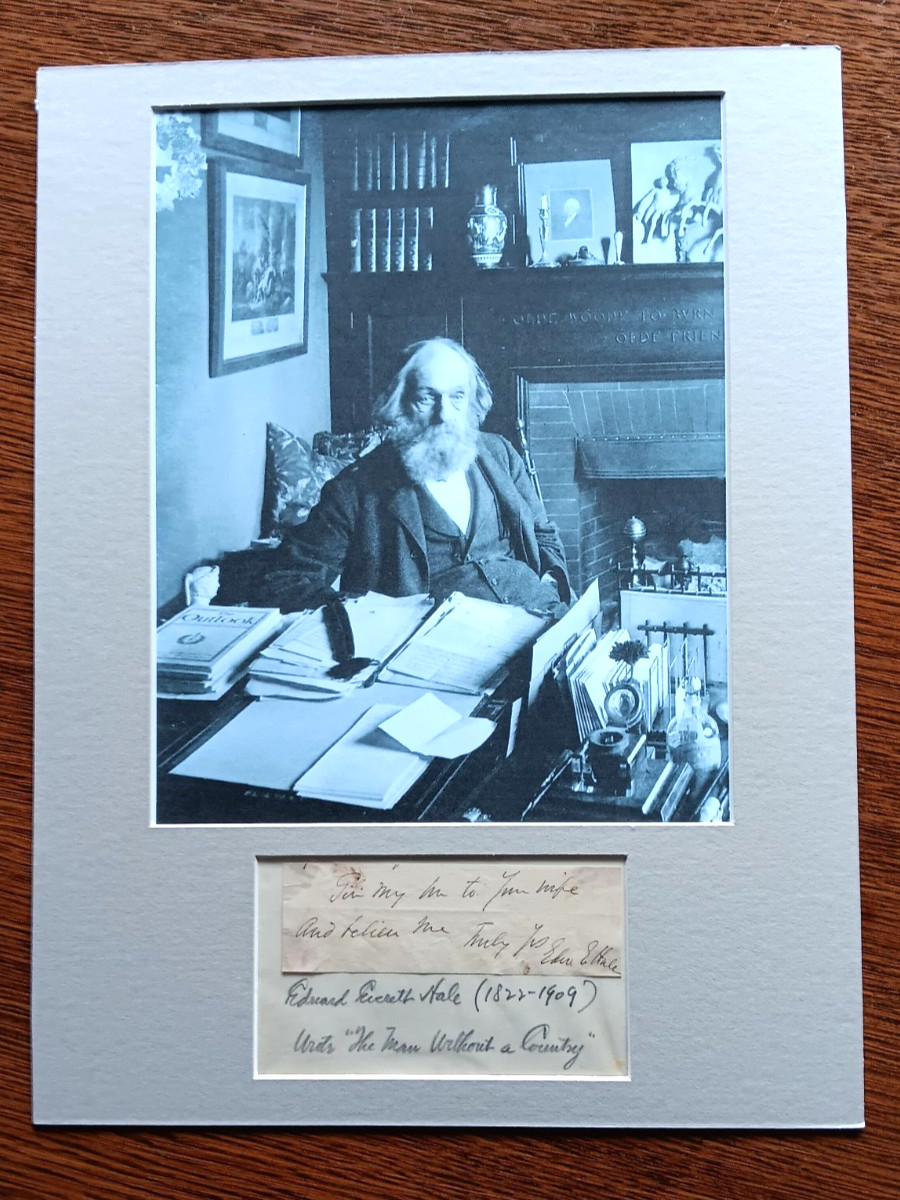 OLDE WOODE TO BVRN
OLDE FRIEN
Outlook
Give my love to your wife
And believe me Truly Yrs
Edw E Hale
Edward Everett Hale (1822-1909)
Wrote "The Man Without a Country"